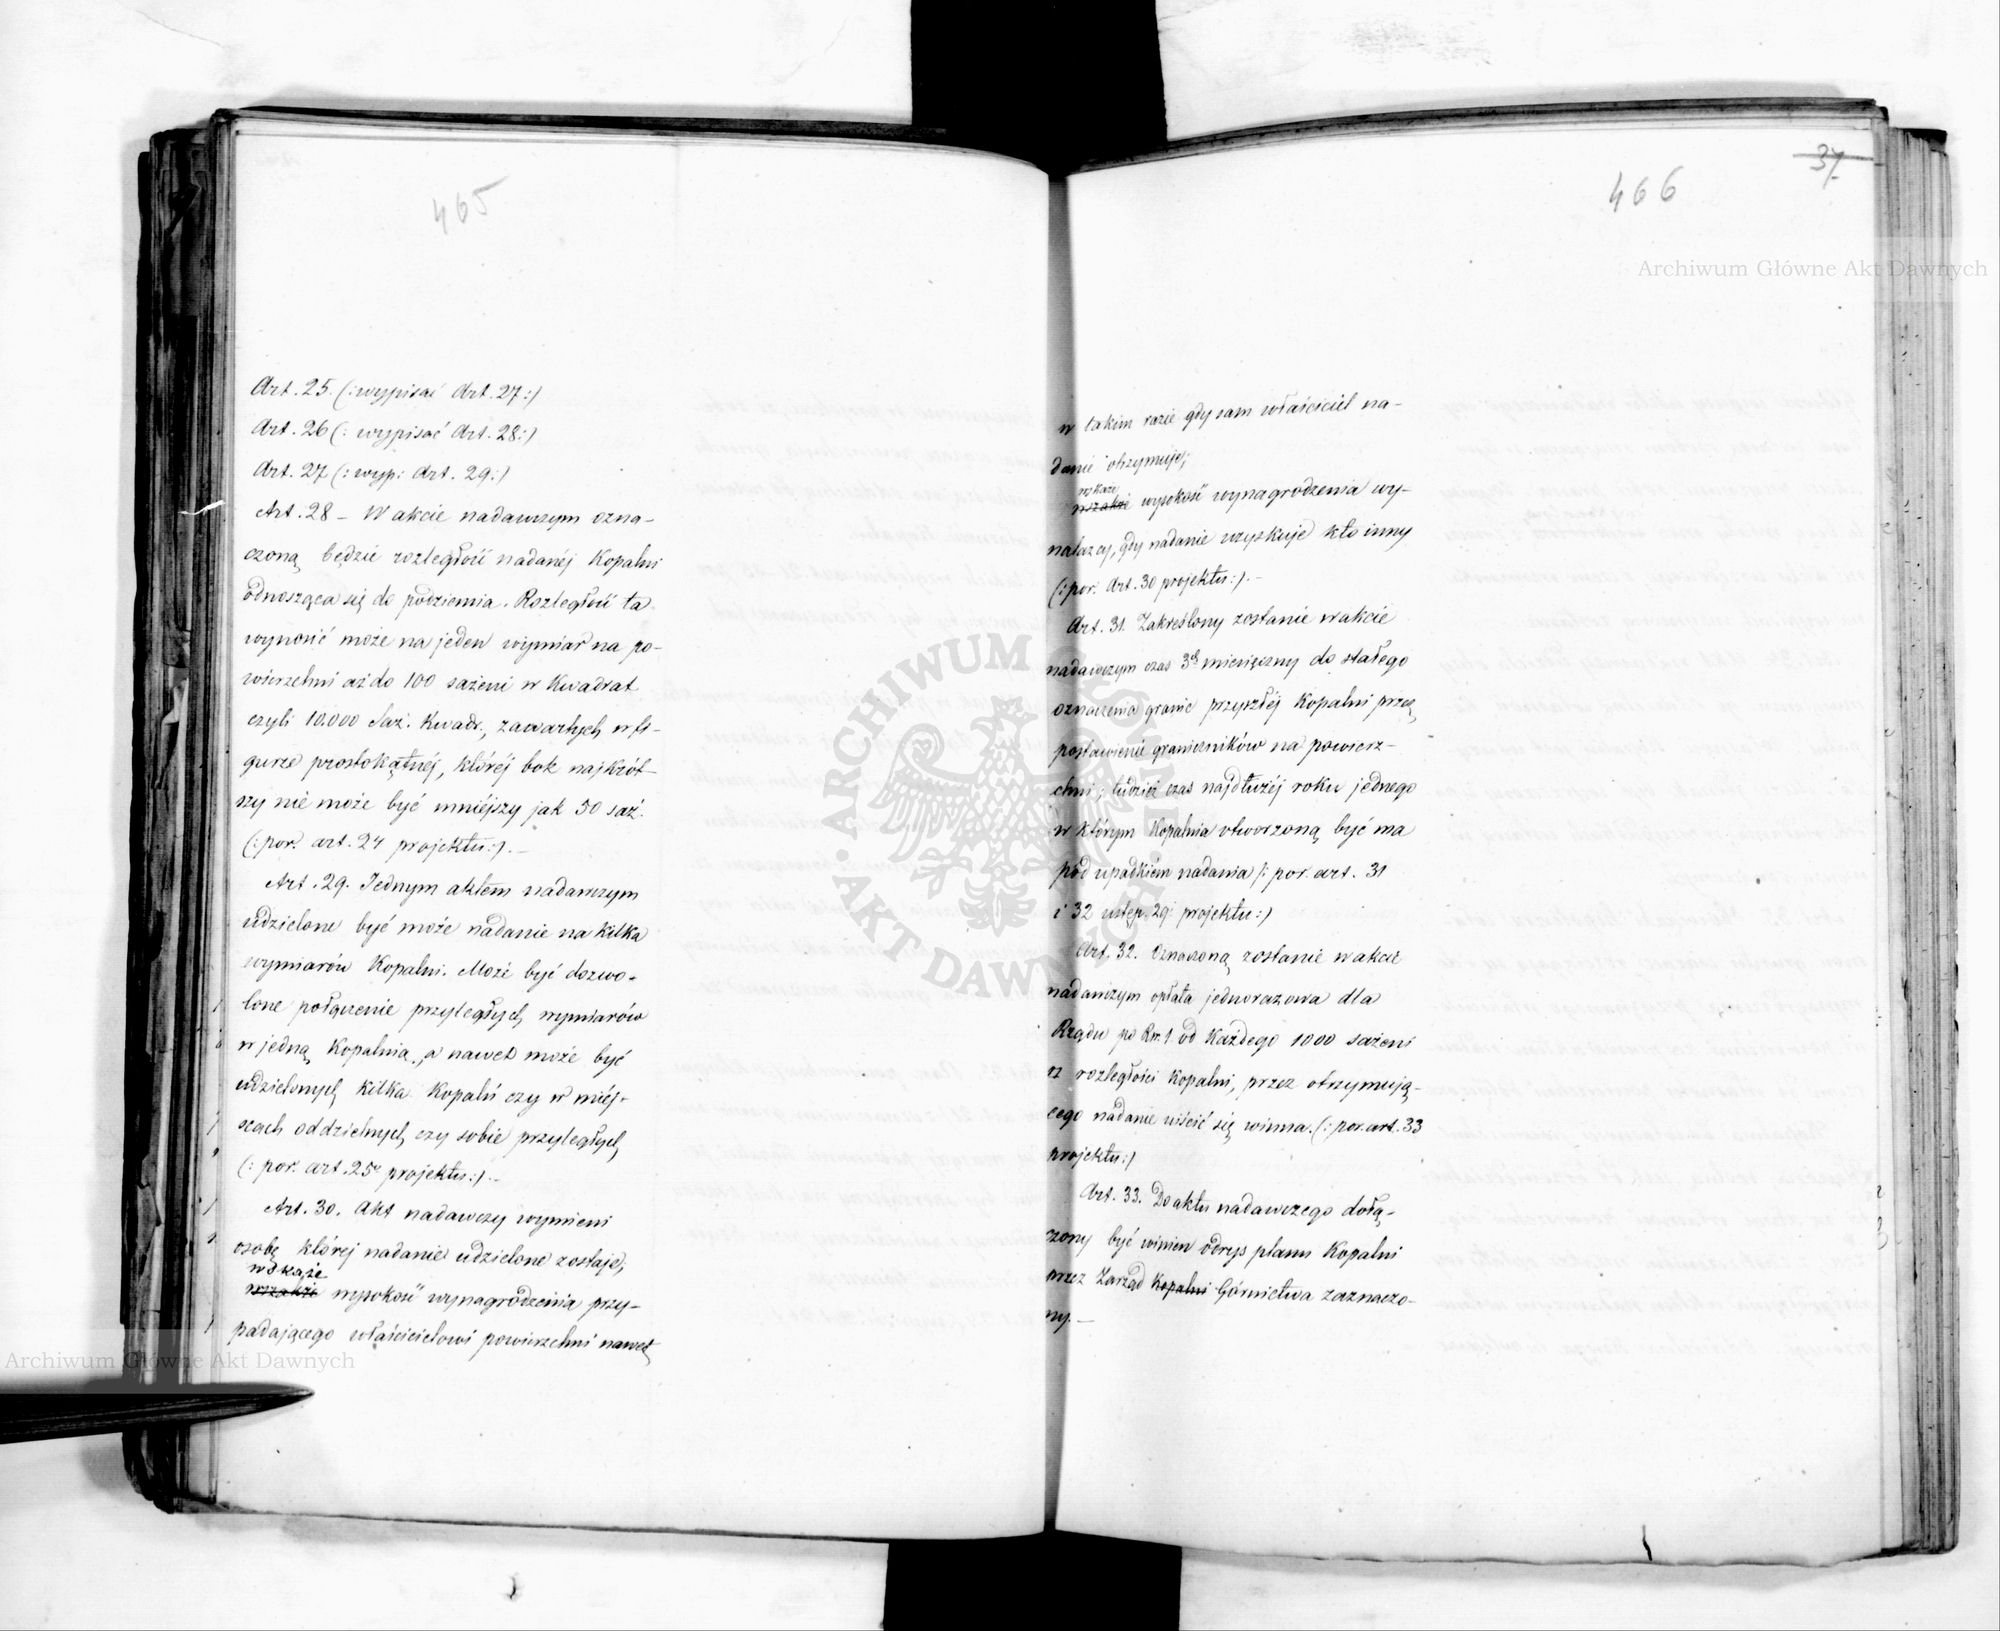 465
Art. 25. (: wypisać Art. 27 :)
Art. 26 (: wypisać Art. 28 :)
Art. 27 (: wyp: Art. 29 :)
Art. 28 – W akcie nadawczym ozna-
czoną będzie rozległość nadanéj Kopalni
odnosząca się do podziemia. Rozległość ta
wynosić może na jeden wymiar na po-
wierzchni aż do 100 sażeni w Kwadrat
czyli 10.000 Saż. Kwadr., zawartych w fi-
gurze prostokątnéj, któréj bok najkrót-
szy nie może być mniéjszy jak 50 saż.
(: por. art. 24 projektu :). –
Art. 29. Jednym aktem nadawczym
udzielone być może nadanie na kilka
wymiarów Kopalni. Może być dozwo-
lone połączenie przyległych wymiarów
w jedną Kopalnią, a nawet może być
udzielonych kilka Kopalń czy w miéj-
scach oddzielnych czy sobie przyległych
(: por. art. 25 projektu :). –
Art. 30. Akt nadawczy wymieni
osobę któréj nadanie udzielone zostaje;
wskaże
wszakże wysokość wynagrodzenia przy-
padającego właścicielowi powierzchni nawet
37
466
w takim razie gdy sam właściciel na-
danie otrzymuje;
wskaże
wszakże wysokość wynagrodzenia wy-
nalazcy, gdy nadanie uzyskuje kto inny
(: por. Art. 30 projektu :). –
Art. 31. Zakreślony zostanie w akcie
nadawczym czas 3ch miesięczny do stałego
oznaczenia granic przyszłéj Kopalni przez
postawienie graniczników na powierz-
chni; tudzież czas najdłużéj roku jednego
w którym Kopalnia otworzoną być ma
pod upadkiem nadania (: por. art. 31
i 32 ustęp. 2gi projektu :)
Art. 32. Oznaczoną zostanie w akcie
nadawczym opłata jednorazowa dla
Rządu po Rsr. 1 od każdego 1000 sażeni
z rozległości Kopalni, przez otrzymują-
cego nadanie uiścić się winna. (: por. art. 33
projektu :)
Art. 33. Do aktu nadawczego dołą-
czony być winien odrys planu Kopalni
przez Zarząd Kopalni Górnictwa zaznaczo-
ny. –
ARCHIWUM GŁÓWNE AKT DAWNYCH
Archiwum Główne Akt Dawnych
Archiwum Główne Akt Dawnych